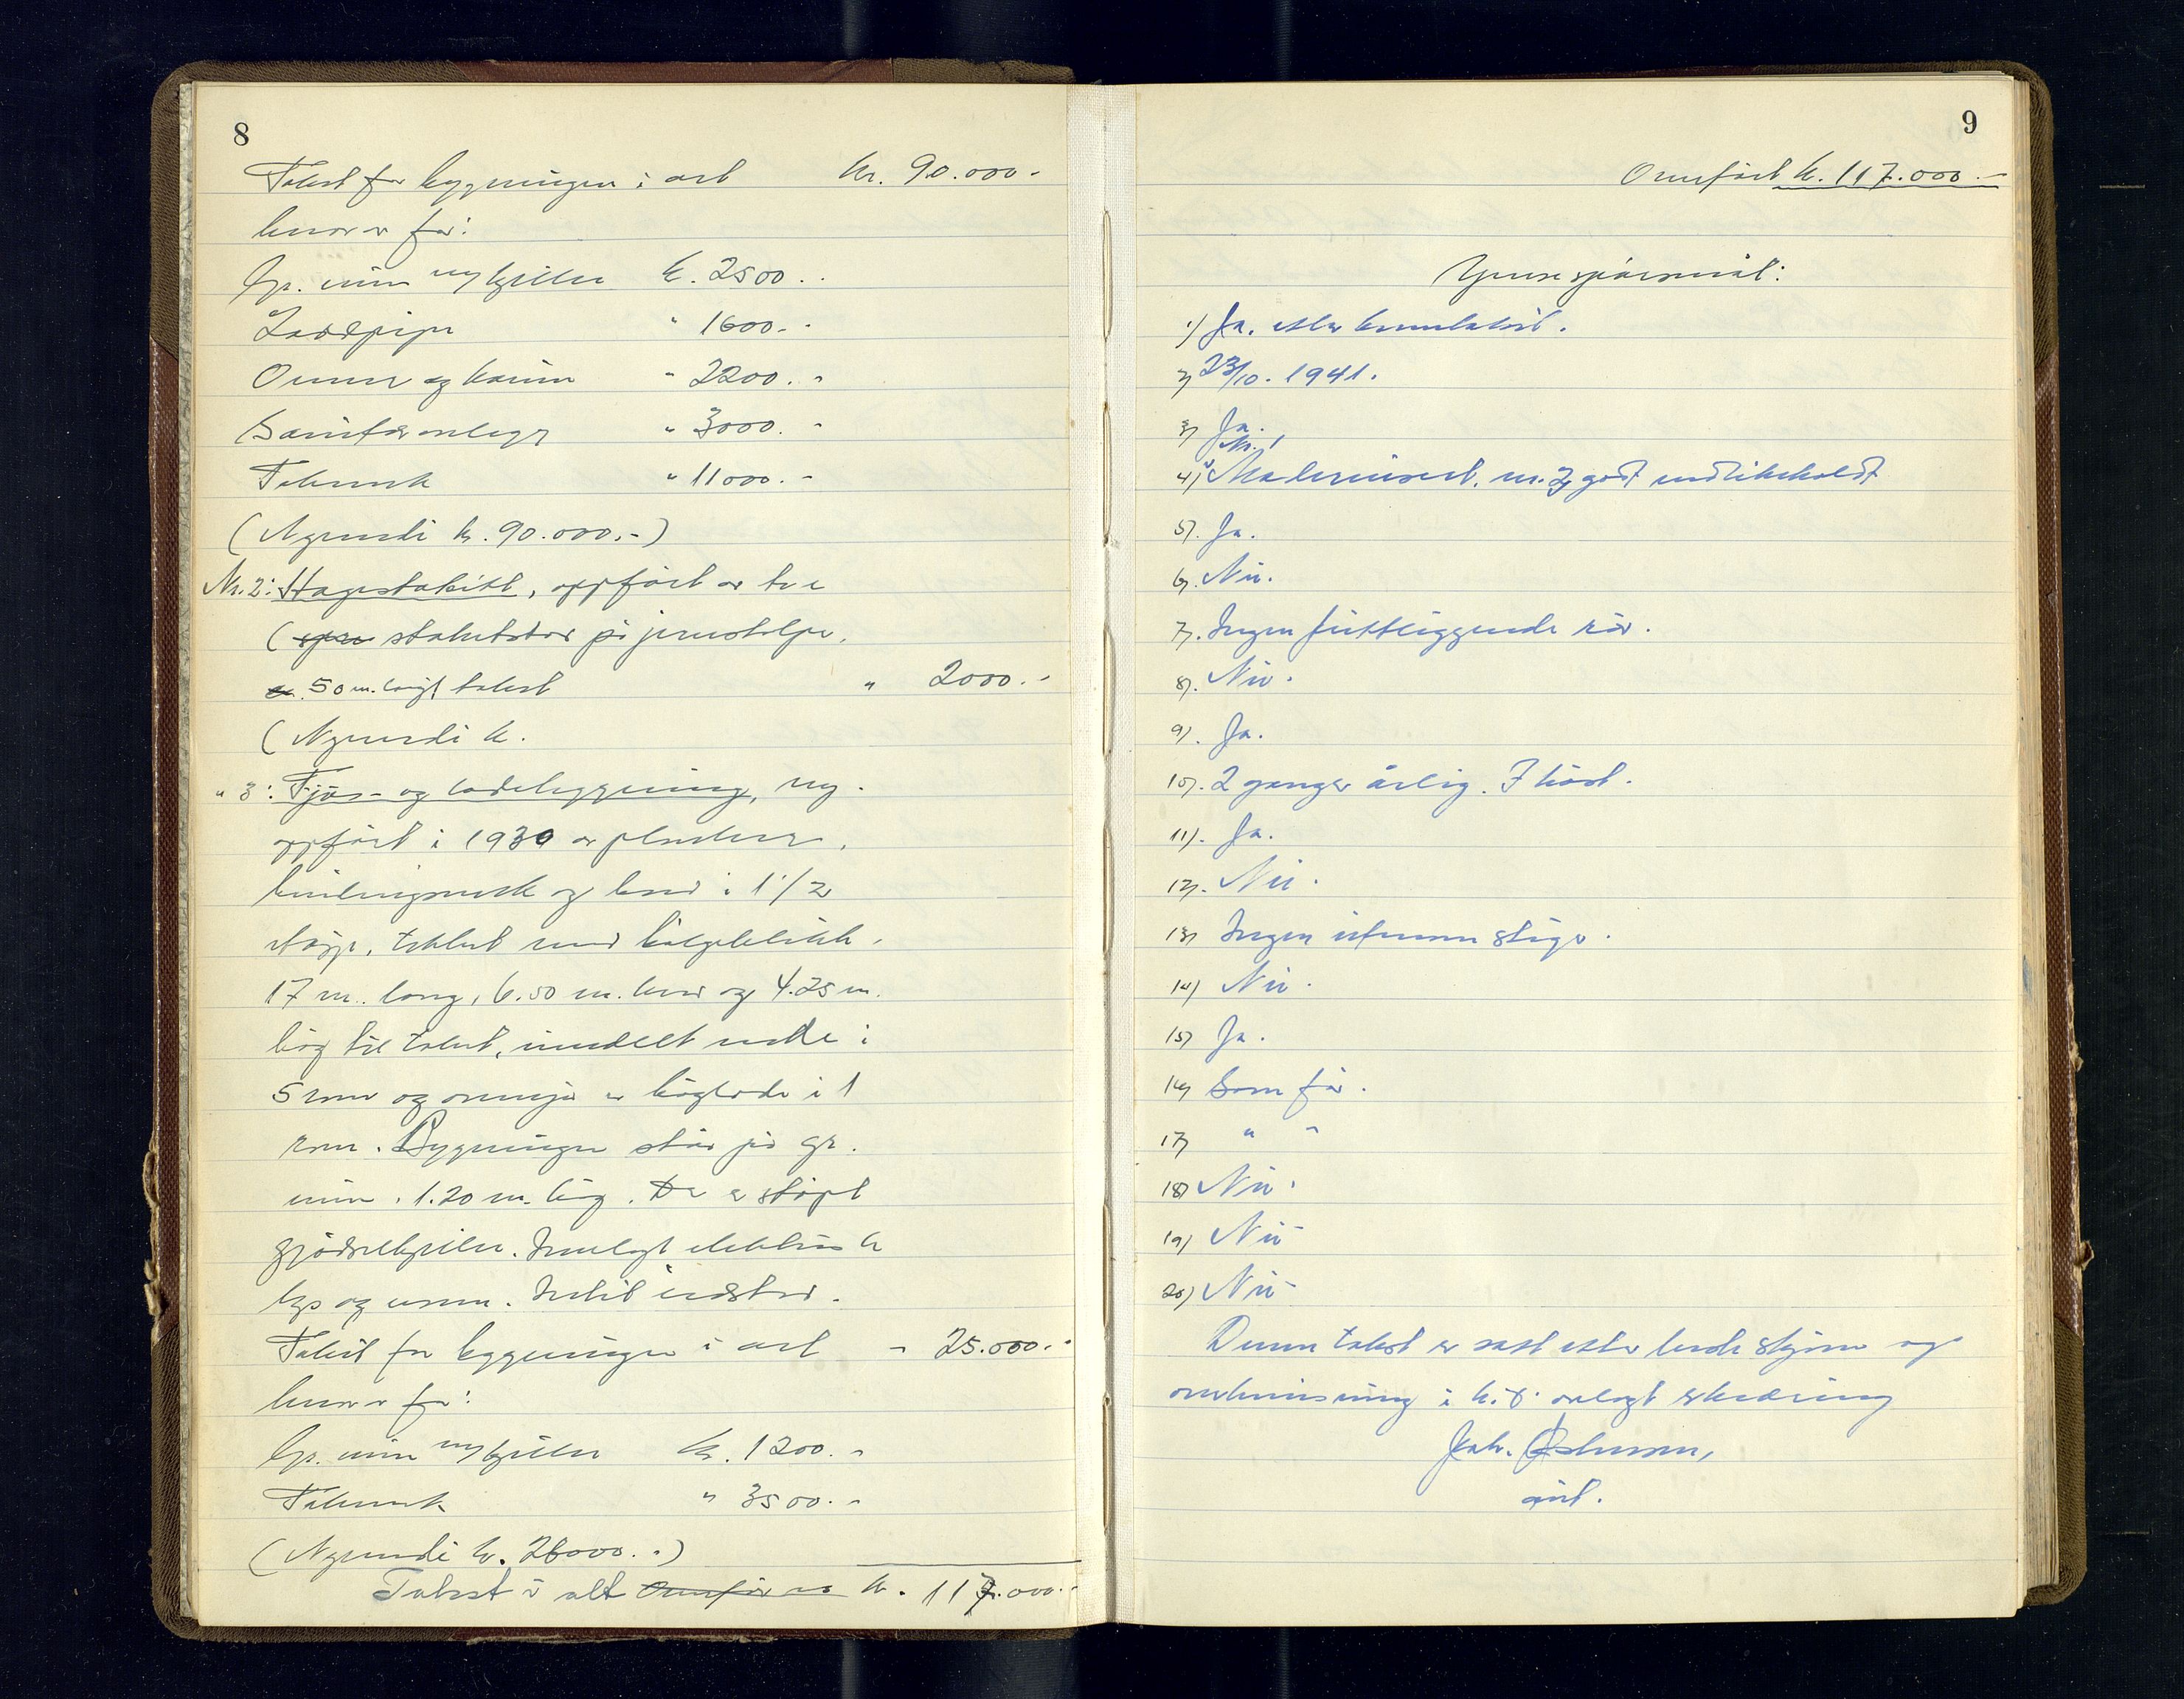 8
Takst for bygningen i alt kr. 90.000.-
hvorav for:
Gr. mur m/kjeller kr. 2500.-
Loddpipe " 1600.-
Ovner og kamin " 2200.-
Sanitæranlegg " 3000.-
Takverk " 11000.-
(Nyverdi kr. 90.000.-)
Nr. 2: Hagestakitt, oppført av tre
( stakitstav på jernstolper,
50 m. langt takst " 2000.-
(Nyverdi kr.
" 3: Fjøs- og ladebygning, ny-
oppført i 1939 av planker,
bindingsverk og bord i 1 1/2
etasje, tekket med bølgeblikk,
17 m. lang, 6.50 m. bred og 4.25 m.
høg til taket, inndelt nede i
5 rom og ovenpå er høglade i 1
rom. Bygningen står på gr.
mur 1.20 m. høg. Der er støpt
gjødselkjeller. Innlagt elektrisk
lys og vann. Intet ildsted.
Takst for bygningen i alt - 25.000.-
hvorav for:
Gr. mur m/kjeller kr. 1200.-
Takverk " 3500.-
(Nyverdi kr. 26000.-)
Takst i alt Overføres kr. 117.000.-
9
Overført kr. 117.000.-
Yvrse spørsmål:
1) Ja. etter branntakst.
2) 23/10. 1941.
3) Ja.
Nr. 1
4) Modernisert. nr. 3 godt vedlikeholdt
5). Ja.
6). Nei.
7). Ingen frittliggende rør.
8). Nei.
9). Ja.
10). 2 ganger årlig. I høst.
11). Ja.
12). Nei.
13) Ingen utvenn. stige.
14) Nei.
15) Ja.
16) Som før.
17) " "
18) Nei.
19) Nei
20) Nei
Denne takst er satt etter beste skjønn og
overbevisning i h.t. avlagt erklæring
Joh. Johnsen,
ast.